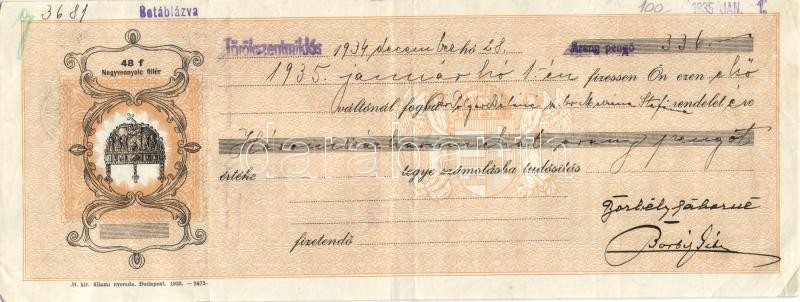 3681 Betáblázva 100 1935 JAN. 1.
48 f
Negyvennyolc fillér
Törökszentmiklós 1934 december hó 28. Arany pengő 336.
1935. január hó 1-én fizessen Ön ezen első
váltónál fogva rendelet é re
Háromszázharminchat arany pengőt
értéke tegye számolásba tudósítás
darabanth
Borbély Gáborné
fizetendő
M. kir. állami nyomda, Budapest, 1933. — 5473